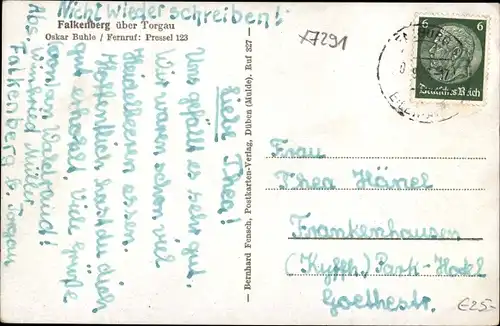 Nicht wieder schreiben!
Falkenberg über Torgau
Oskar Buhle / Fernruf: Pressel 123
Liebe Thea!
Uns gefällt es sehr gut.
Wir waren schon viel
Heidelbeeren essen.
Hoffentlich hast du dich
gut erholt. Viele Grüße
Waldraud!
Abs. Winfried Müller
Falkenberg b. Torgau
Bernhard Fensch, Postkarten-Verlag, Düben (Mulde), Ruf 327
x7291
6 6
Deutsches Reich
Frau
Thea Hänel
Frankenhausen
(Kyffh.) Park-Hotel
Goethestr.
€25-